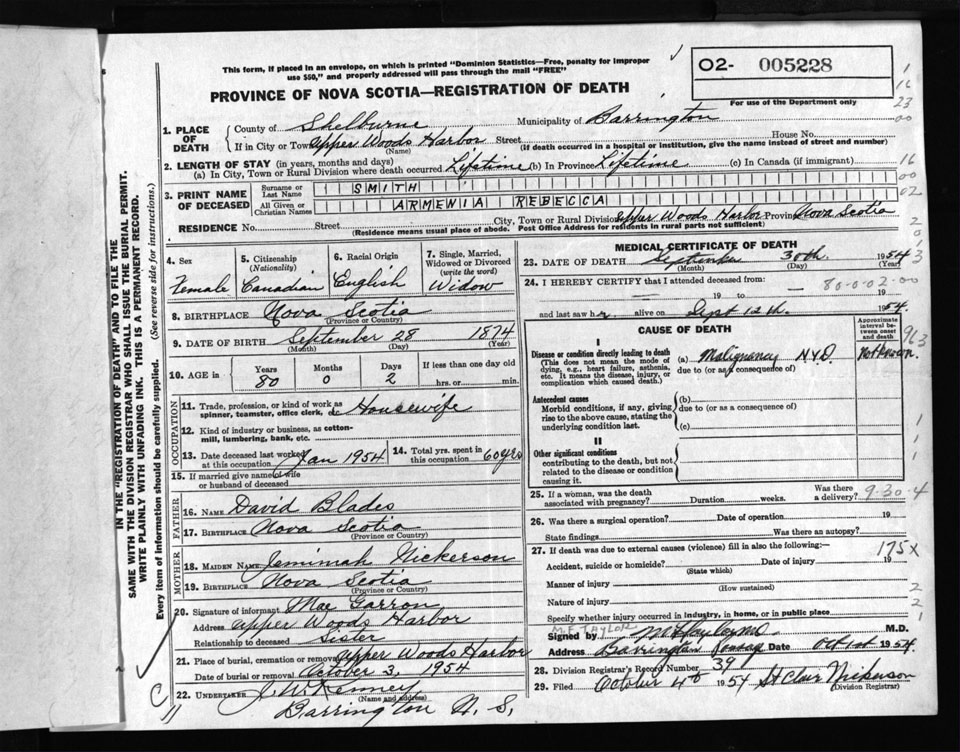 This form, if placed in an envelope, on which is printed "Dominion Statistics—Free, penalty for improper
use $50," and properly addressed will pass through the mail "FREE"
O2- 005228
For use of the Department only
PROVINCE OF NOVA SCOTIA—REGISTRATION OF DEATH
1. PLACE OF DEATH County of Shelburne Municipality of Barrington
If in City or Town Upper Woods Harbor Street House No.
(Name) (If death occurred in a hospital or institution, give the name instead of street and number)
2. LENGTH OF STAY (in years, months and days)
(a) In City, Town or Rural Division where death occurred Lifetime (b) In Province Lifetime (c) In Canada (if immigrant)
3. PRINT NAME OF DECEASED Surname or Last Name SMITH
All Given or Christian Names ARMENIA REBECCA
RESIDENCE No. Street City, Town or Rural Division Upper Woods Harbor Province Nova Scotia
(Residence means usual place of abode. Post Office Address for residents in rural parts not sufficient)
4. Sex Female
5. Citizenship (Nationality) Canadian
6. Racial Origin English
7. Single, Married, Widowed or Divorced (write the word) Widow
8. BIRTHPLACE Nova Scotia
(Province or Country)
9. DATE OF BIRTH September 28 1874
(Month) (Day) (Year)
10. AGE in Years 80 Months 0 Days 2 If less than one day old
hrs. or min.
OCCUPATION
11. Trade, profession, or kind of work as spinner, teamster, office clerk, etc. Housewife
12. Kind of industry or business, as cotton-mill, lumbering, bank, etc.
13. Date deceased last worked at this occupation Jan 1954
14. Total yrs. spent in this occupation 60 yrs
15. If married give name of wife or husband of deceased
FATHER
16. NAME David Blades
17. BIRTHPLACE Nova Scotia
(Province or Country)
MOTHER
18. MAIDEN NAME Jemimah Nickerson
19. BIRTHPLACE Nova Scotia
(Province or Country)
20. Signature of informant Mae Garron
Address Upper Woods Harbor
Relationship to deceased Sister
21. Place of burial, cremation or removal Upper Woods Harbor
Date of burial or removal October 3, 1954
22. UNDERTAKER J. W. Kenney
(Name and address)
Barrington N. S.
MEDICAL CERTIFICATE OF DEATH
23. DATE OF DEATH September 30th 1954
(Month) (Day) (Year)
24. I HEREBY CERTIFY that I attended deceased from: 80-0-02-00
19 to 19
and last saw her alive on Sept 12th. 1954.
CAUSE OF DEATH
Approximate interval between onset and death
I
Disease or condition directly leading to death (a) Malignancy N.Y.D. Not known.
(This does not mean the mode of dying, e.g., heart failure, asthenia, etc. It means the disease, injury, or complication which caused death.)
due to (or as a consequence of)
Antecedent causes (b)
Morbid conditions, if any, giving rise to the above cause, stating the underlying condition last.
due to (or as a consequence of)
(c)
II
Other significant conditions
contributing to the death, but not related to the disease or condition causing it.
25. If a woman, was the death associated with pregnancy? Duration weeks. Was there a delivery? 9-30-4
26. Was there a surgical operation? Date of operation 19
State findings Was there an autopsy?
27. If death was due to external causes (violence) fill in also the following:— 175X
Accident, suicide or homicide? Date of injury 19
(State which)
Manner of injury
(How sustained)
Nature of injury
Specify whether injury occurred in industry, in home, or in public place
M.F. TAYLOR
Signed by M.D.
Address Barrington Passage Date Oct 1st 1954.
28. Division Registrar's Record Number 39
29. Filed October 4th 1954 St Clair Nickerson
(Division Registrar)
IN THE "REGISTRATION OF DEATH" AND TO FILE THE
SAME WITH THE DIVISION REGISTRAR WHO SHALL ISSUE THE BURIAL PERMIT.
WRITE PLAINLY WITH UNFADING INK. THIS IS A PERMANENT RECORD.
Every item of information should be carefully supplied. (See reverse side for instructions.)
1
16
23
00
16
00
02
963